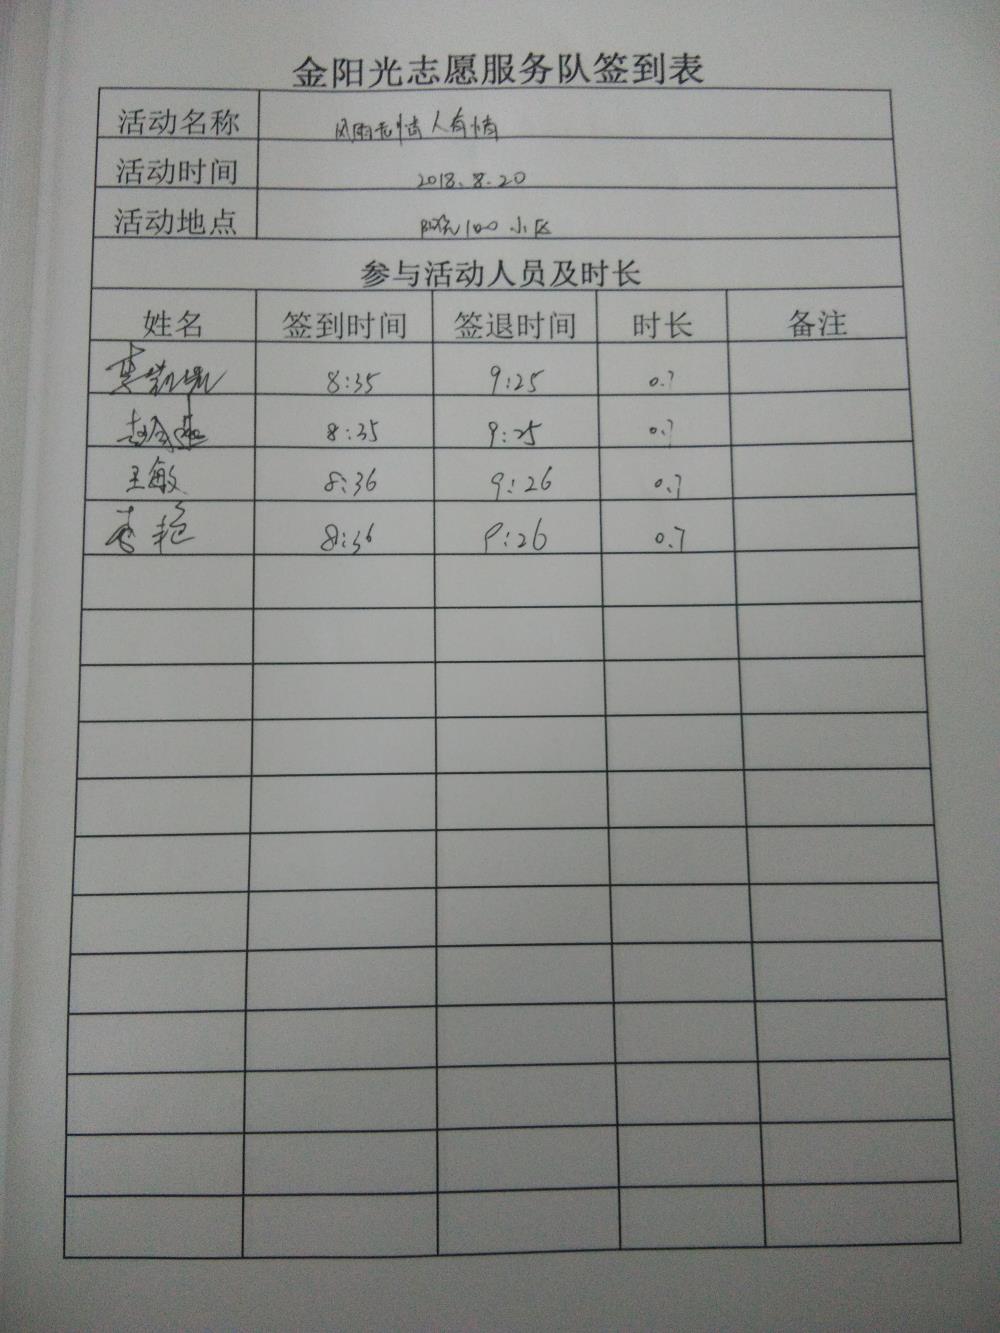 金阳光志愿服务队签到表
活动名称 风雨无情人有情
活动时间 2018.8.20
活动地点 阳光100小区
参与活动人员及时长
姓名 签到时间 签退时间 时长 备注
李凯凯 8:35 9:25 0.7
8:35 9:25 0.7
王敏 8:36 9:26 0.7
李艳 8:36 9:26 0.7